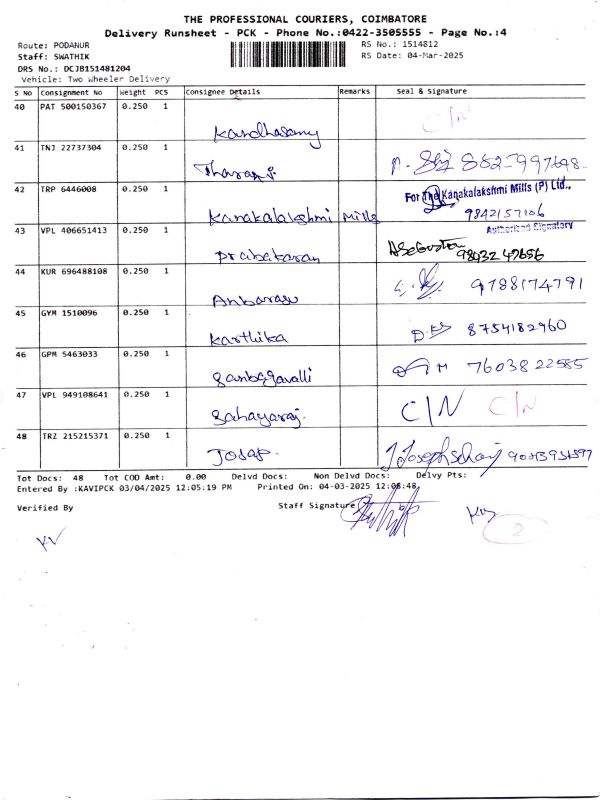 THE PROFESSIONAL COURIERS, COIMBATORE
Delivery Runsheet - PCK - Phone No.:0422-3505555 - Page No.:4
Route: PODANUR RS No.: 1514812
Staff: SWATHIK RS Date: 04-Mar-2025
DRS No.: DCJB151481204
Vehicle: Two Wheeler Delivery
S NO Consignment No Weight PCS Consignee Details Remarks Seal & Signature
40 PAT 500150367 0.250 1
C/N
Kandhasamy
41 TNJ 22737304 0.250 1
Tharani
42 TRP 6446008 0.250 1
For The Kanakalakshmi Mills (P) Ltd.,
Kanakalalakshmi Mills 9842157106
Authorised Signatory
43 VPL 406651413 0.250 1
Prabakaran 98032 47656
44 KUR 696488108 0.250 1
9788174791
Anbarasu
45 GYM 1510096 0.250 1
8754182960
Karthika
46 GPM 5463033 0.250 1
7603822585
Sanbagavalli
47 VPL 949108641 0.250 1
C/N C/N
Sahayaraj
48 TRZ 215215371 0.250 1
Josap.
Tot Docs: 48 Tot COD Amt: 0.00 Delvd Docs: Non Delvd Docs: Delvy Pts:
Entered By :KAVIPCK 03/04/2025 12:05:19 PM Printed On: 04-03-2025 12:06:48
Verified By Staff Signature
KV
2